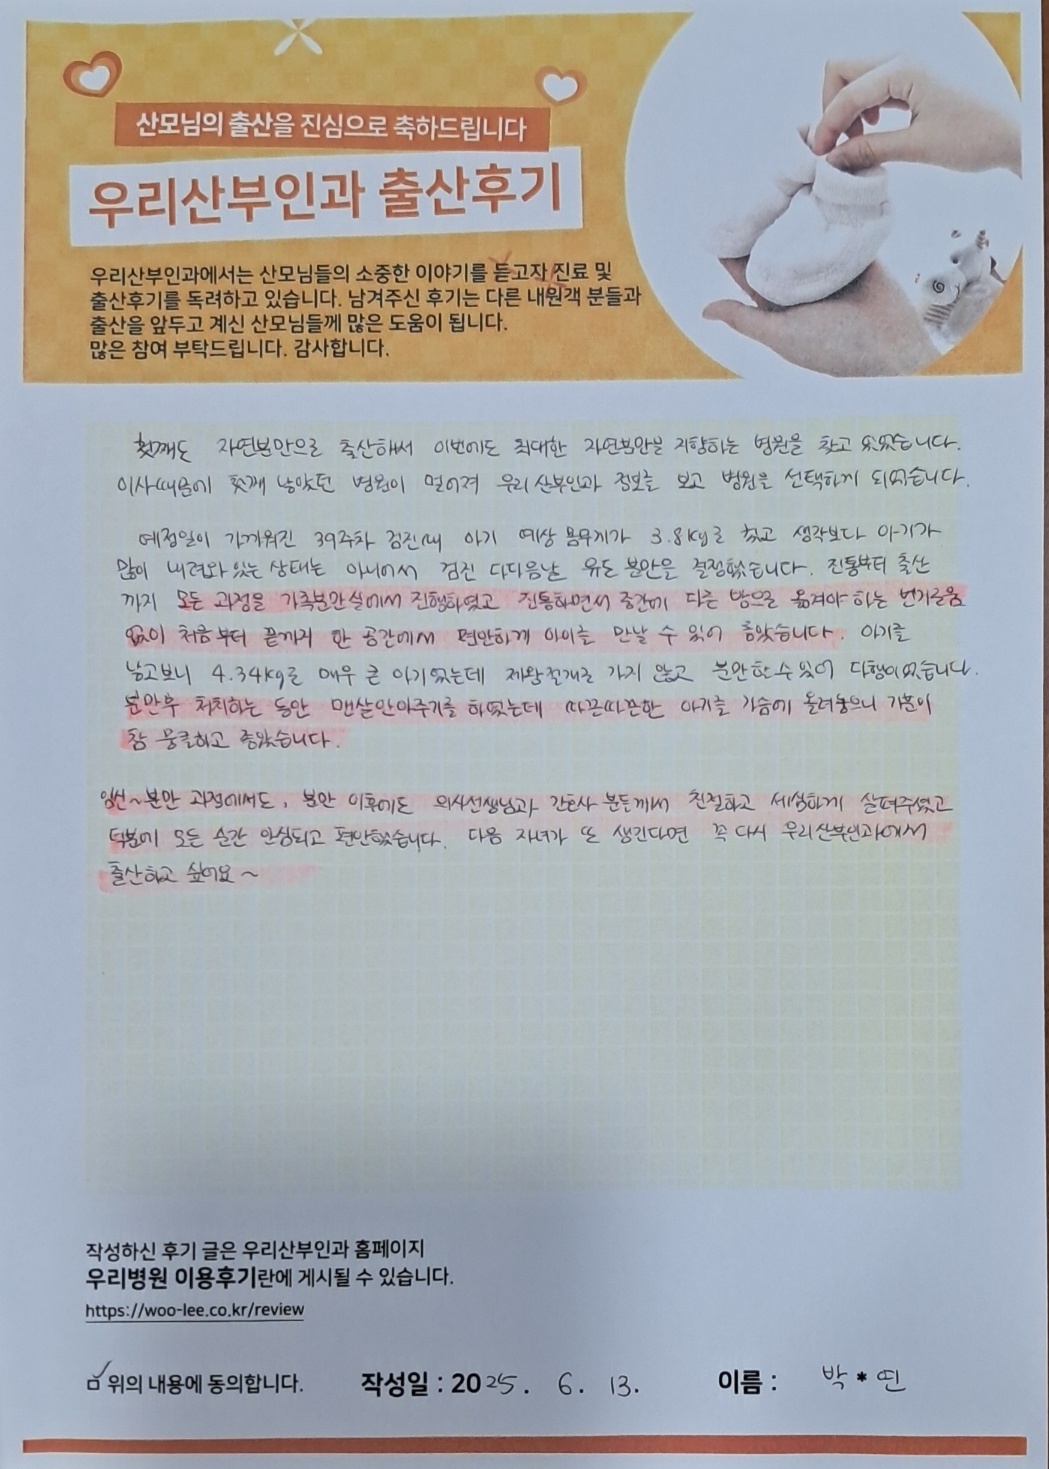 산모님의 출산을 진심으로 축하드립니다
우리산부인과 출산후기
우리산부인과에서는 산모님들의 소중한 이야기를 듣고자 진료 및
출산후기를 독려하고 있습니다. 남겨주신 후기는 다른 내원객 분들과
출산을 앞두고 계신 산모님들께 많은 도움이 됩니다.
많은 참여 부탁드립니다. 감사합니다.
첫째도 자연분만으로 출산해서 이번에도 최대한 자연분만을 지향하는 병원을 찾고 있었습니다.
이사때문에 첫째 낳았던 병원이 멀어져 우리산부인과 정보를 보고 병원을 선택하게 되었습니다.
예정일이 가까워진 39주차 검진때 아기 예상 몸무게가 3.8kg로 컸고 생각보다 아기가
많이 내려와 있는 상태는 아니어서 검진 다다음날 유도 분만을 결정했습니다. 진통부터 출산
까지 모든 과정을 가족분만실에서 진행하였고 진통하면서 중간에 다른 방으로 옮겨야 하는 번거로움
없이 처음부터 끝까지 한 공간에서 편안하게 아이를 만날 수 있어 좋았습니다. 아기를
낳고보니 4.34kg로 매우 큰 아기였는데 제왕절개로 가지 않고 분만할 수 있어 다행이었습니다.
분만후 처치하는 동안 맨살안아주기를 하였는데 따끈따끈한 아기를 가슴에 올려놓으니 기분이
참 뭉클하고 좋았습니다.
임신~분만 과정에서도, 분만 이후에도 의사선생님과 간호사 분들께서 친절하고 세심하게 살펴주셨고
덕분에 모든 순간 안심되고 편안했습니다. 다음 자녀가 또 생긴다면 꼭 다시 우리산부인과에서
출산하고 싶어요~
작성하신 후기 글은 우리산부인과 홈페이지
우리병원 이용후기란에 게시될 수 있습니다.
https://woo-lee.co.kr/review
위의 내용에 동의합니다. 작성일 : 2025. 6. 13. 이름 : 박*